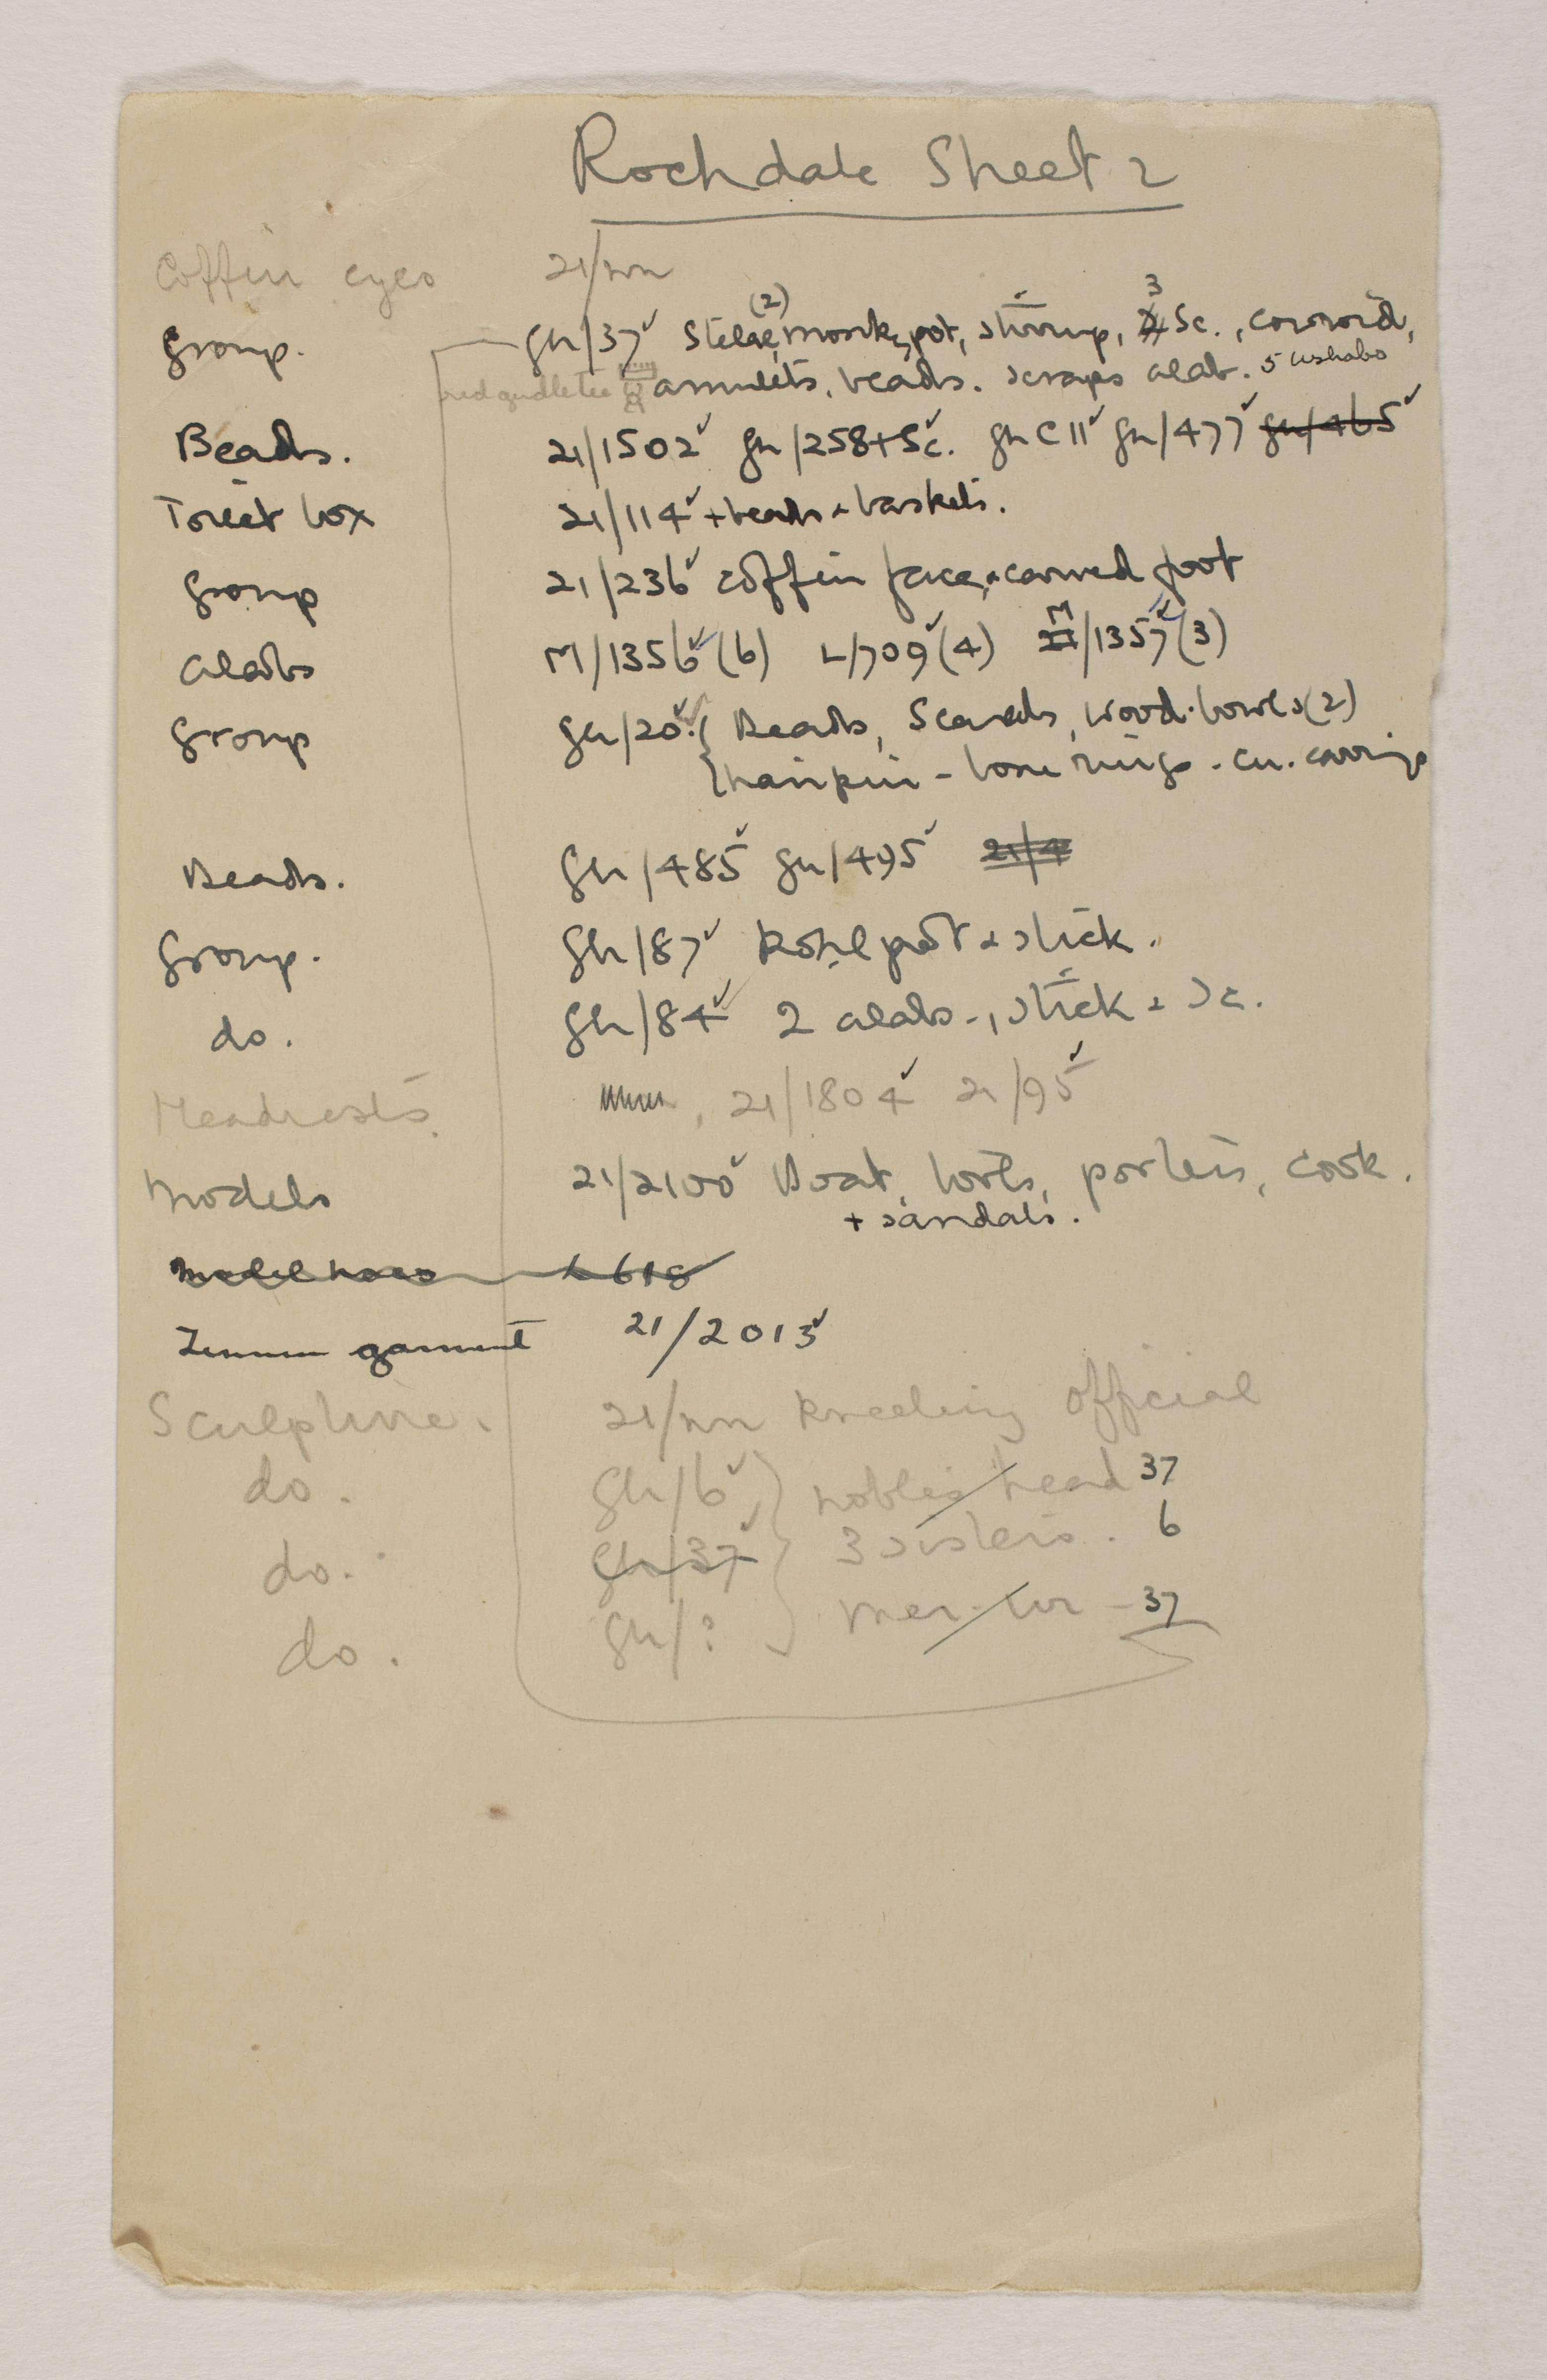 Rochdale Sheet 2
Coffin eyes 21/nn
Group. Gu/37✓ Stelae (2), monkey pot, stirrup, 3 Sc., cowroid,
amulets, beads. scraps alab. 5 ushabs
Beads. 21/1502✓ Gu/258+Sc✓. Gu C11✓ Gu/477✓ Gu/465✓
Toilet box 21/114✓ + beads + baskets.
Group 21/236✓ coffin face, + carved foot
Alabs M/1356✓(6) L/709✓(4) M/1357✓(3)
Group Gu/20✓. { Beads, Scarabs, wood. bowls (2)
hairpin - bone rings - cu. earrings
Beads. Gu/485✓ Gu/495✓ 21/4
Group. Gu/87✓ Kohl pot + stick.
do. Gu/84✓ 2 alabs -, stick + Sc.
Headrests. 21/1804✓ 21/95✓
Models 21/2100✓ Boat, boats, porters, cook.
+ sandals.
Model hoes L 618
Linen garment 21/2013✓
Sculpture. 21/nn Kneeling official
do. Gu/6✓ nobles head 37
do. Gu/37✓ 3 sisters. 6
do. Gu/? Mer-ur - 37